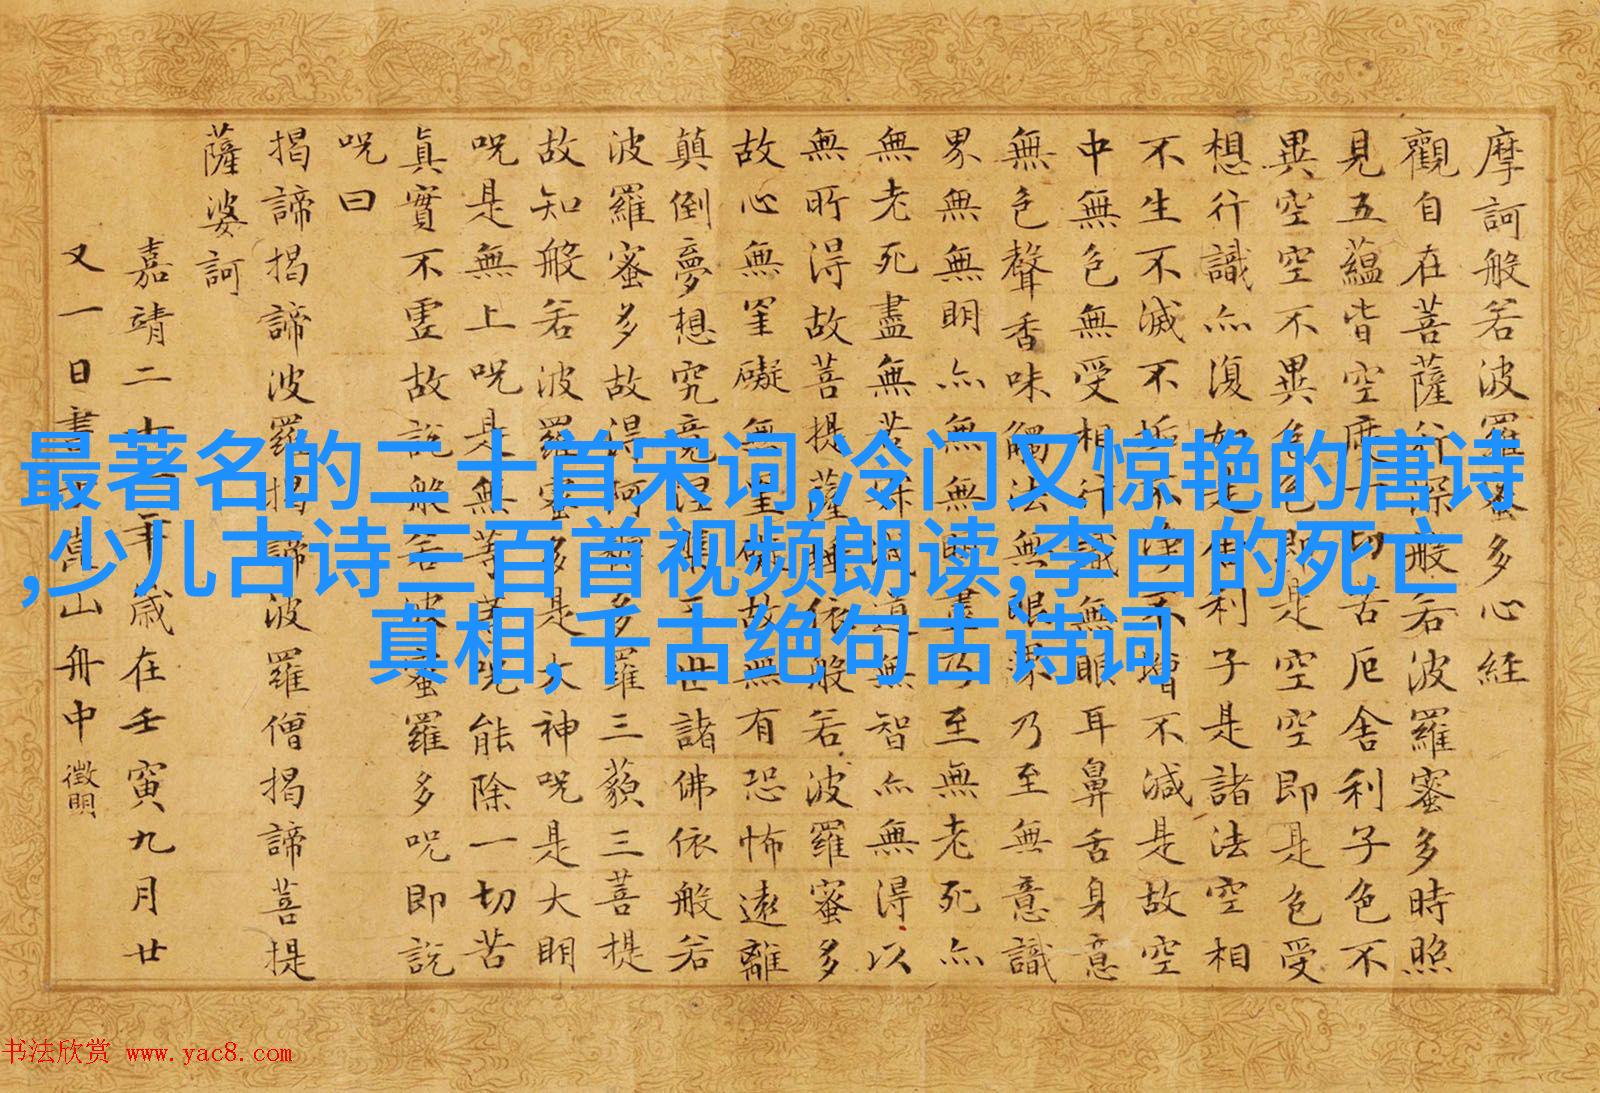 摩訶般若波羅蜜多心經
觀自在菩薩行深般若波羅蜜多時照
見五蘊皆空度一切苦厄舍利子色不
異空空不異色色即是空空即是色受
想行識亦復如是舍利子是諸法空相
不生不滅不垢不淨不增不減是故空
中無色無受相行識無眼耳鼻舌身意
無色聲香味觸法無眼界乃至無意識
界無無明亦無無明盡乃至無老死亦
無老死盡無苦集滅道無智亦無得以
無所得故菩提薩埵依般若波羅蜜多
故心無罣礙無罣礙故無有恐怖遠離
顛倒夢想究竟涅槃三世諸佛依般若
波羅蜜多故得阿耨多羅三藐三菩提
故知般若波羅蜜多是大神呪是大明
呪是無上呪是無等等呪能除一切苦
真實不虛故說般若波羅蜜多呪即說
呪曰
揭諦揭諦波羅揭諦波羅僧揭諦菩提
薩婆訶
嘉靖二十一年歲在壬寅九月廿
又一日書于崑山舟中 徵明
最著名的二十首宋词,冷门又惊艳的唐诗
,少儿古诗三百首视频朗读,李白的死亡
真相,千古绝句古诗词
书法欣赏 www.yac8.com